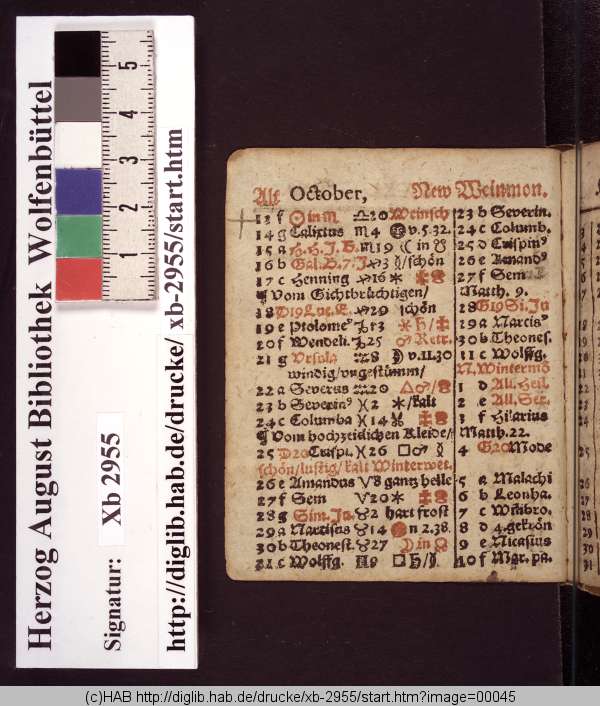 Herzog August Bibliothek Wolfenbüttel
Signatur: Xb 2955
http://diglib.hab.de/drucke/ xb-2955/start.htm
1 2 3 4 5
Alt October, New Weinmon.
13 f ☉ in ♏ ♎20 Weinsch 23 b Severin.
14 g Calixtus ♏4 v. 5.32. 24 c Columb.
15 a H. H. J. B. ♏19 ☾ in ☋ 25 d Crispin⁹
16 b Gal. B. 7. J ♐3 /schön 26 e Amand⁹
17 c Henning ♐16 ✶ 27 f Sem
¶ Vom Gichtbrüchtigen/ Matth. 9.
18 D19 Luc. E. ♐29 schön 28 G19 Si. Ju
19 e Ptolome⁹ ♑13 ✶ ♄/♃ 29 a Narcis⁹
20 f Wendeli. ♑25 ♂ Retr. 30 b Theones.
21 g Ursula ♒8 ☽ v. 11.30 31 c Wolffg.
windig/ungestümm/ N. Wintermō
22 a Severus ♒20 △♂/ 1 d All. Heil.
23 b Severin⁹ ♓2 ✶/kalt 2 e All. See.
24 c Columba ♓14 3 f Hilarius
¶ Vom hochzeitlichen Kleide/ Matth. 22.
25 D20 Crispi. ♓26 □♂ ☿ 4 G20 Mode
schön/lustig/kalt Winterwet.
26 e Amandus ♈8 gantz helle 5 a Malachi
27 f Sem ♈20 ✶ 6 b Leonha.
28 g Sim. Ju. ♉2 hart frost 7 c Willbro.
29 a Narcisus ♉14 n 2.38. 8 d 4. gekrön
30 b Theonest. ♉27 ☽ in ☊ 9 e Nicasius
31 c Wolffg. ♊9 □ ♄/♃ 10 f Mar. pa.
(c)HAB http://diglib.hab.de/drucke/xb-2955/start.htm?image=00045